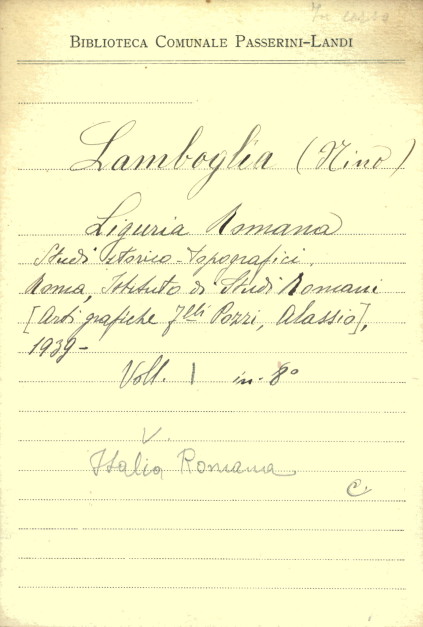 In corso
BIBLIOTECA COMUNALE PASSERINI-LANDI
Lamboglia (Nino)
Liguria Romana
Studi storico-topografici.
Roma, Istituto di Studi Romani
[Arti grafiche F.lli Pozzi, Alassio],
1939-
Voll. 1 in-8°
V.
Italia Romana
C.